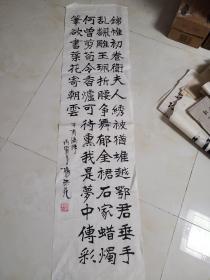 錦帷初卷衛夫人綉被犹堆越鄂君垂手
乱飜雕玉珮折腰爭舞郁金裙石家蜡燭
何曾剪荀令香爐可待熏我是夢中傳彩
筆欲書葉花寄朝雲